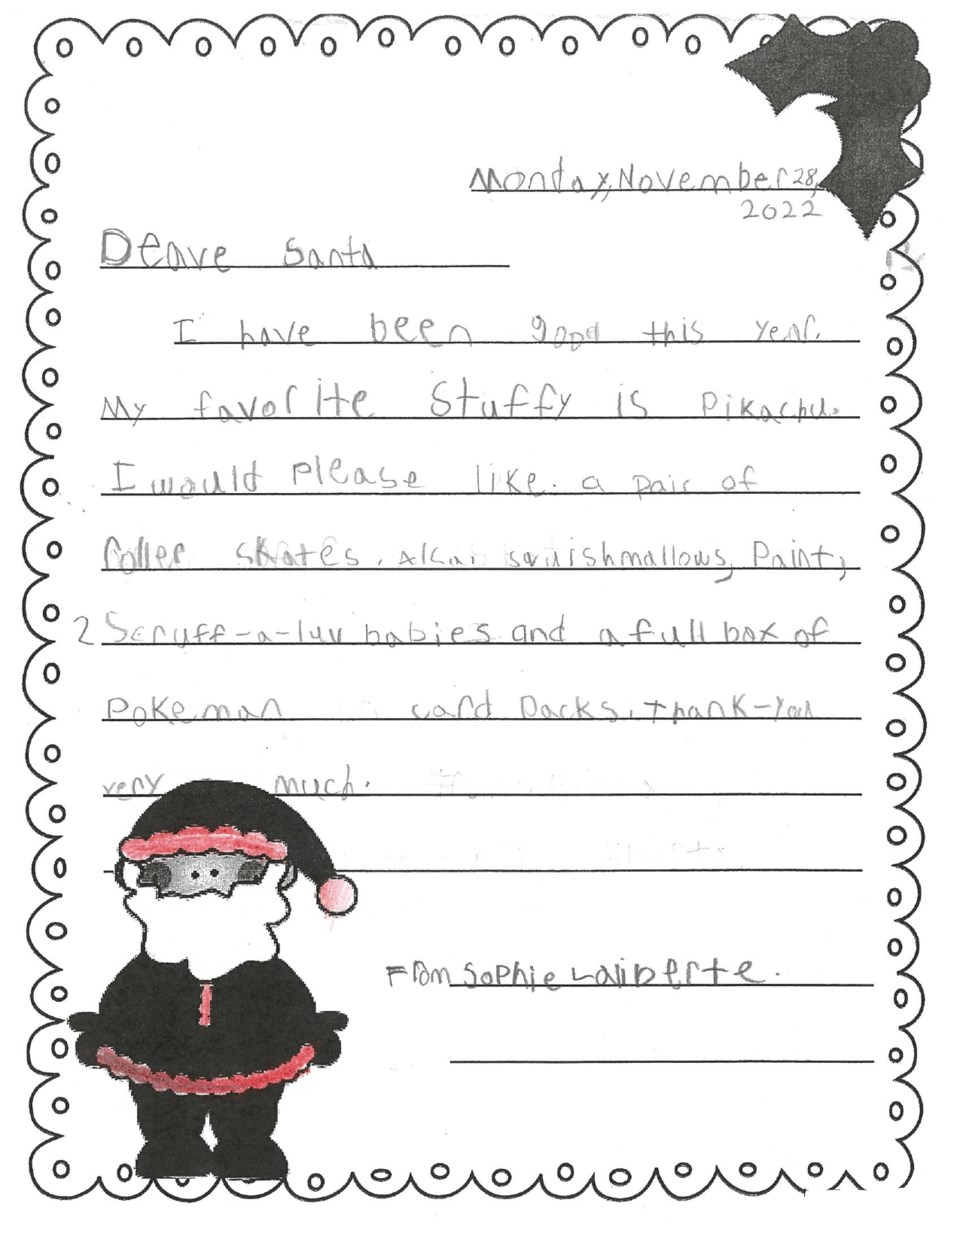 Monday, November 28,
2022
Deave Santa
I have been good this year.
My favorite Stuffy is Pikachu.
I would please like a pair of
roller skates. Also, squishmallows, Paint,
2 Scruff-a-luv babies and a full box of
Pokeman card Packs. thank-you
very much.
From Sophie Laliberte.